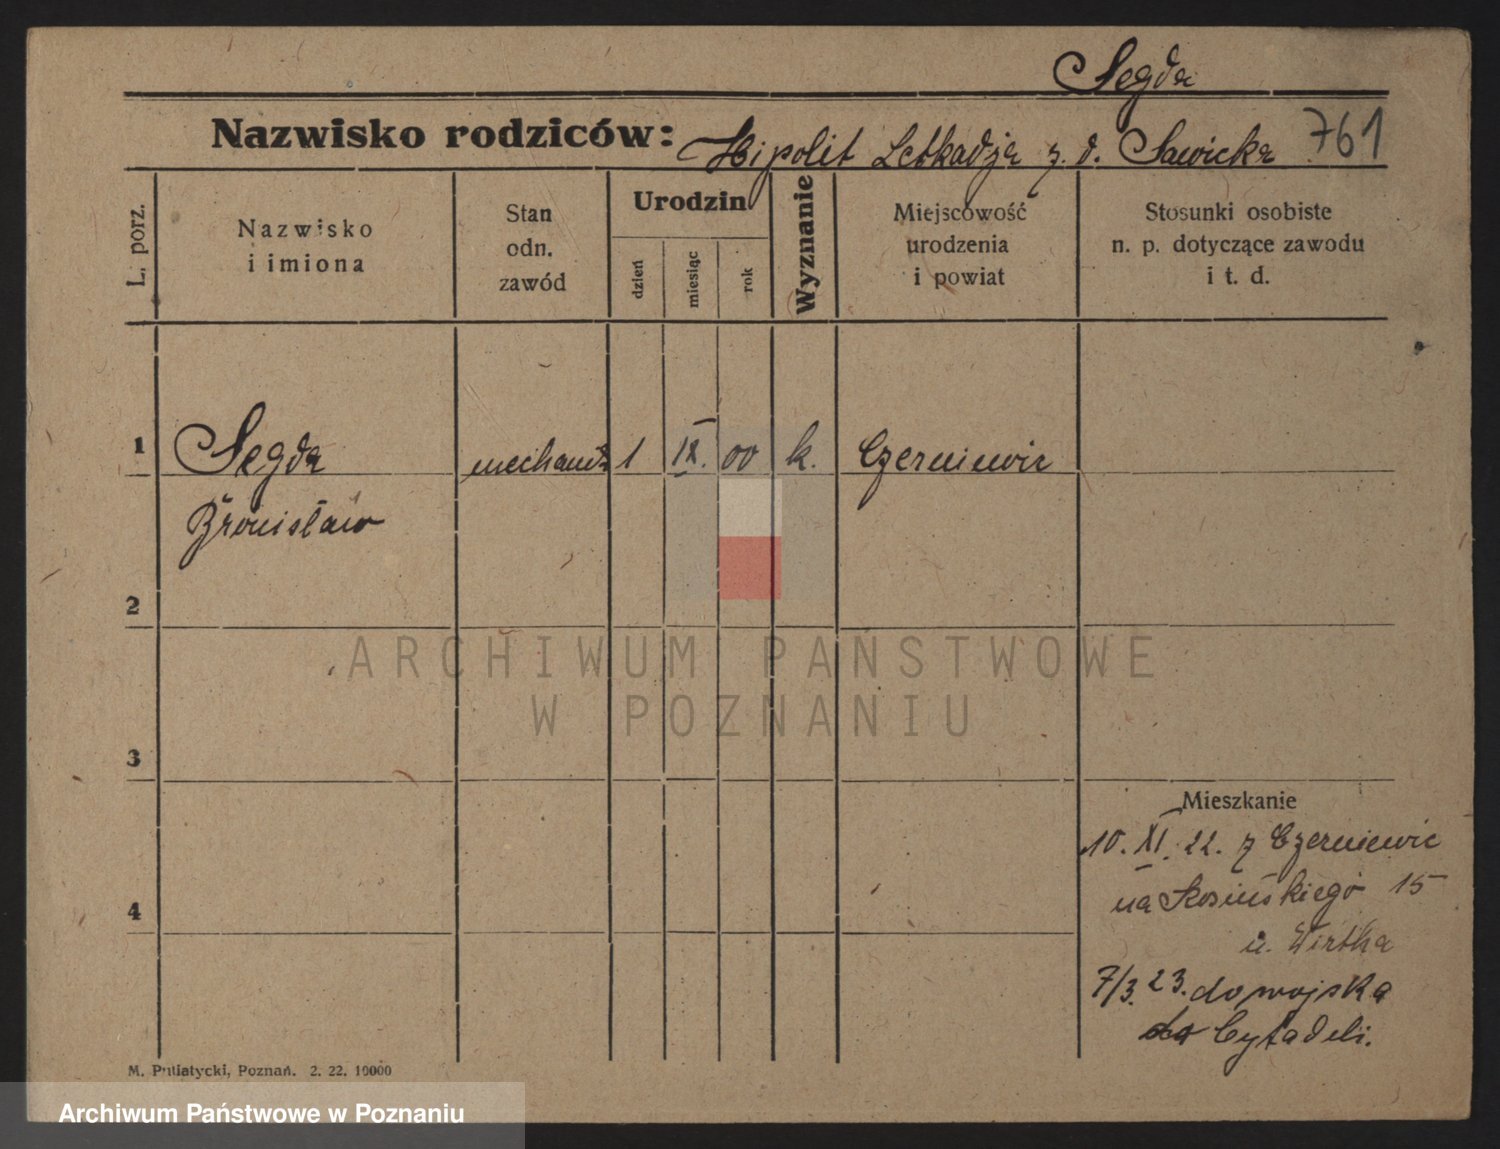 Segda
Nazwisko rodziców: Hipolit Letkadja z. d. Sawicka 761
L. porz.
Nazwisko
i imiona
Stan
odn.
zawód
Urodzin
dzień
miesiąc
rok
Wyznanie
Miejscowość
urodzenia
i powiat
Stosunki osobiste
n. p. dotyczące zawodu
i t. d.
1 Segda mechanik 1 IX. 00 k. Czerniewic
Bronisław
2
ARCHIWUM PAŃSTWOWE
W POZNANIU
3
Mieszkanie
10. XI. 22. z Czerniewic
na Kosińskiego 15
4
u. Wirtha
7/3. 23. do wojska
Cytadeli.
M. Putiatycki, Poznań. 2. 22. 10000
Archiwum Państwowe w Poznaniu